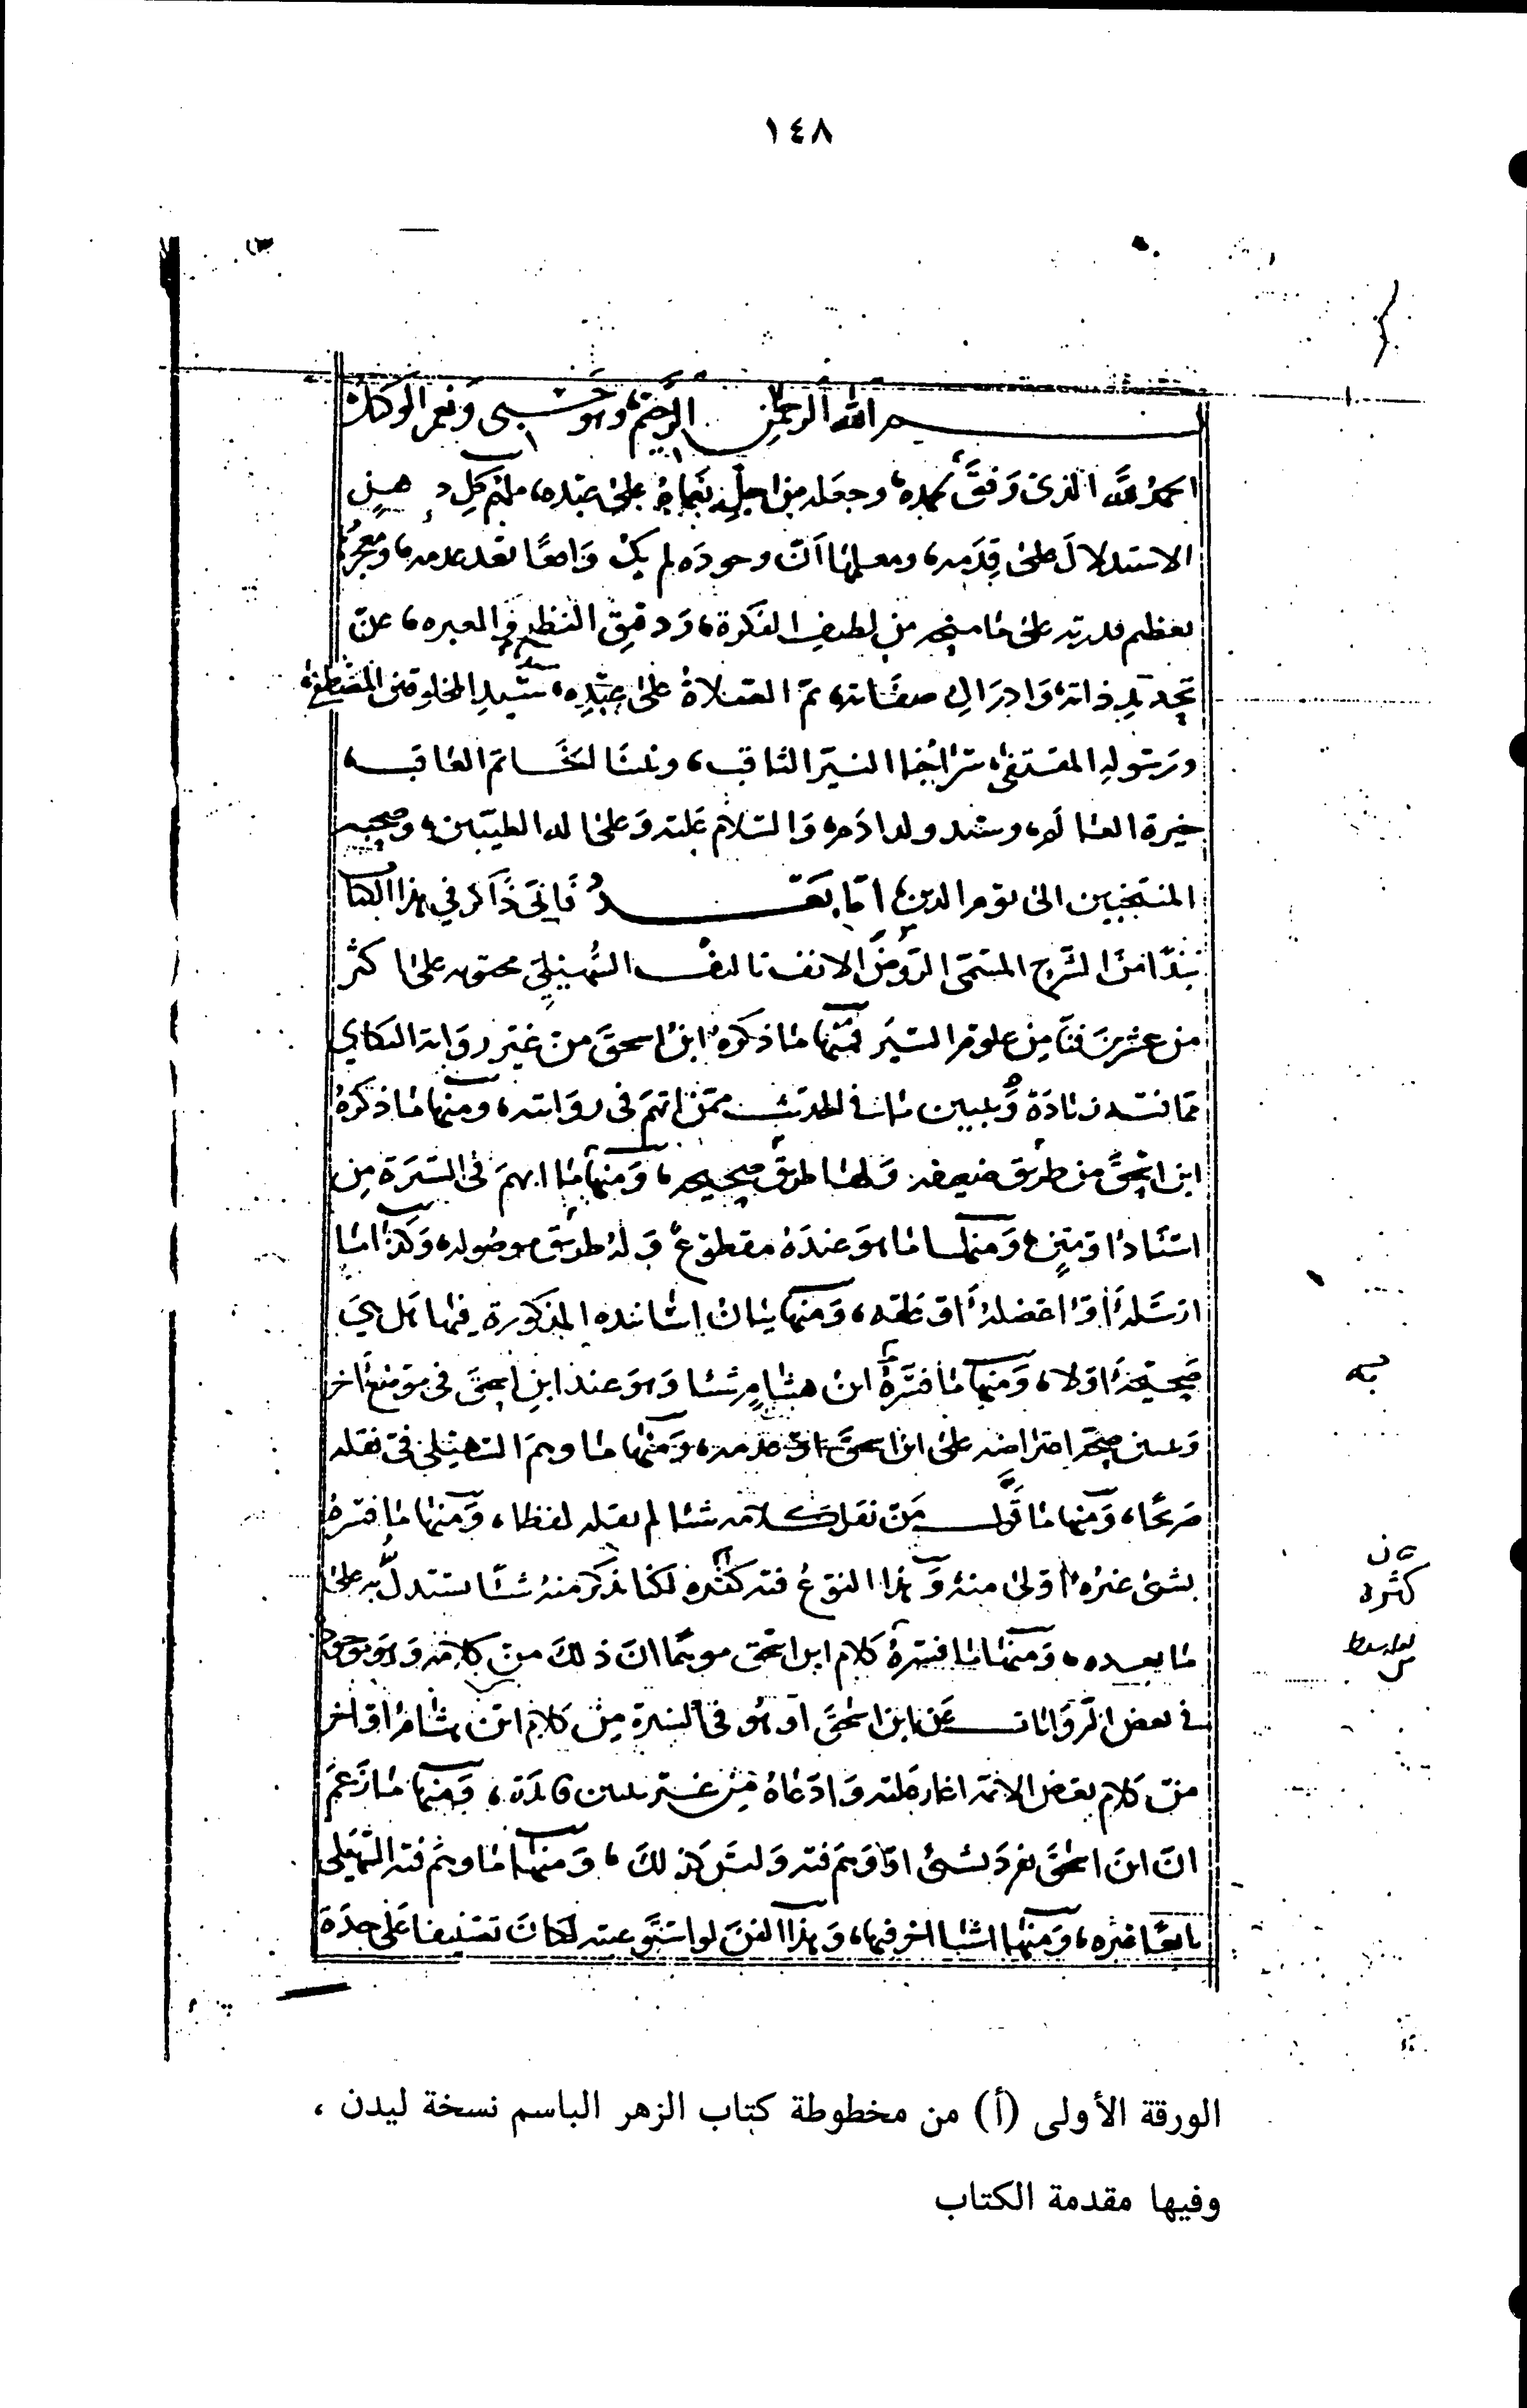 ١٤٨
بسم الله الرحمن الرحيم وهو حسبي ونعم الوكيل
الحمد لله الذي وفق لحمده، وجعله من اجل نعمائه على عبده، ملهم كل ذهن
الاستدلال على قدمه، ومعلمها ان وجوده لم يك واقعا بعد عدمه، ومعجزها
بعظم قدرته على ما منحه من لطيف الفكرة، ودقيق النظر والعبره، عن
تحديد ذاته، وادراك صفاته، ثم الصلاة على عبده، سيد المخلوقين المصطفى،
ورسوله المقتفى، سراجنا النير الثاقب، ونبينا الخاتم العاقب،
خيرة العالم، وسيد ولد ادم، والسلام عليه وعلى اله الطيبين، وصحبه
المنتخبين الى يوم الدين، اما بعد فاني ذاكر في هذا الكتاب
نبذا من الشرح المسمى الروض الانف تاليف السهيلي محتويه على اكثر
من عشرين فنا من علوم السير فمنها ما ذكره ابن اسحق من غير رواية البكاي
مما فيه زيادة وتبيين في الحديث ممن اتهم في روايته، ومنها ما ذكره
ابن اسحق من طريق ضعيفه ولها طريق صحيحه، ومنها ما ابهم في السيرة من
اسناد او متن، ومنها ما هو عنده مقطوع وله طريق موصوله، وكذا ما
ارسله او اعضله او علقه، ومنها بيان اسانيده المذكورة فيها هل هي
صحيحة اولا، ومنها ما فسره ابن هشام شيئا وهو عند ابن اسحق في موضع اخر
وتبيين صحة اعتراضه على ابن اسحق او عدمه، ومنها ما وهم السهيلي في نقله
صريحا، ومنها ما قول من نقل كلامه شيئا لم يقله لفظا، ومنها ما فسره
بشئ غيره اولى منه وهذا النوع فيه كثره لكنا نذكر منه شيئا يستدل به على
ما بعده، ومنها ما فسره كلام ابن اسحق موهما ان ذلك من كلامه وهو موجود
في بعض الروايات عن ابن اسحق او هو في السيرة من كلام ابن هشام او اخر
من كلام بعض الائمه اغار عليه وادعاه من غير تبيين قائله، ومنها ما زعم
ان ابن اسحق تفرد بشئ او وهم فيه وليس كذلك، ومنها ما وهم فيه السهيلي
تابعا غيره، ومنها اشيا اخر فيها، وهذا الفن لو استوعبته لكان تصنيفا على حدة
كثره
الورقة الأولى (أ) من مخطوطة كتاب الزهر الباسم نسخة ليدن ،
وفيها مقدمة الكتاب